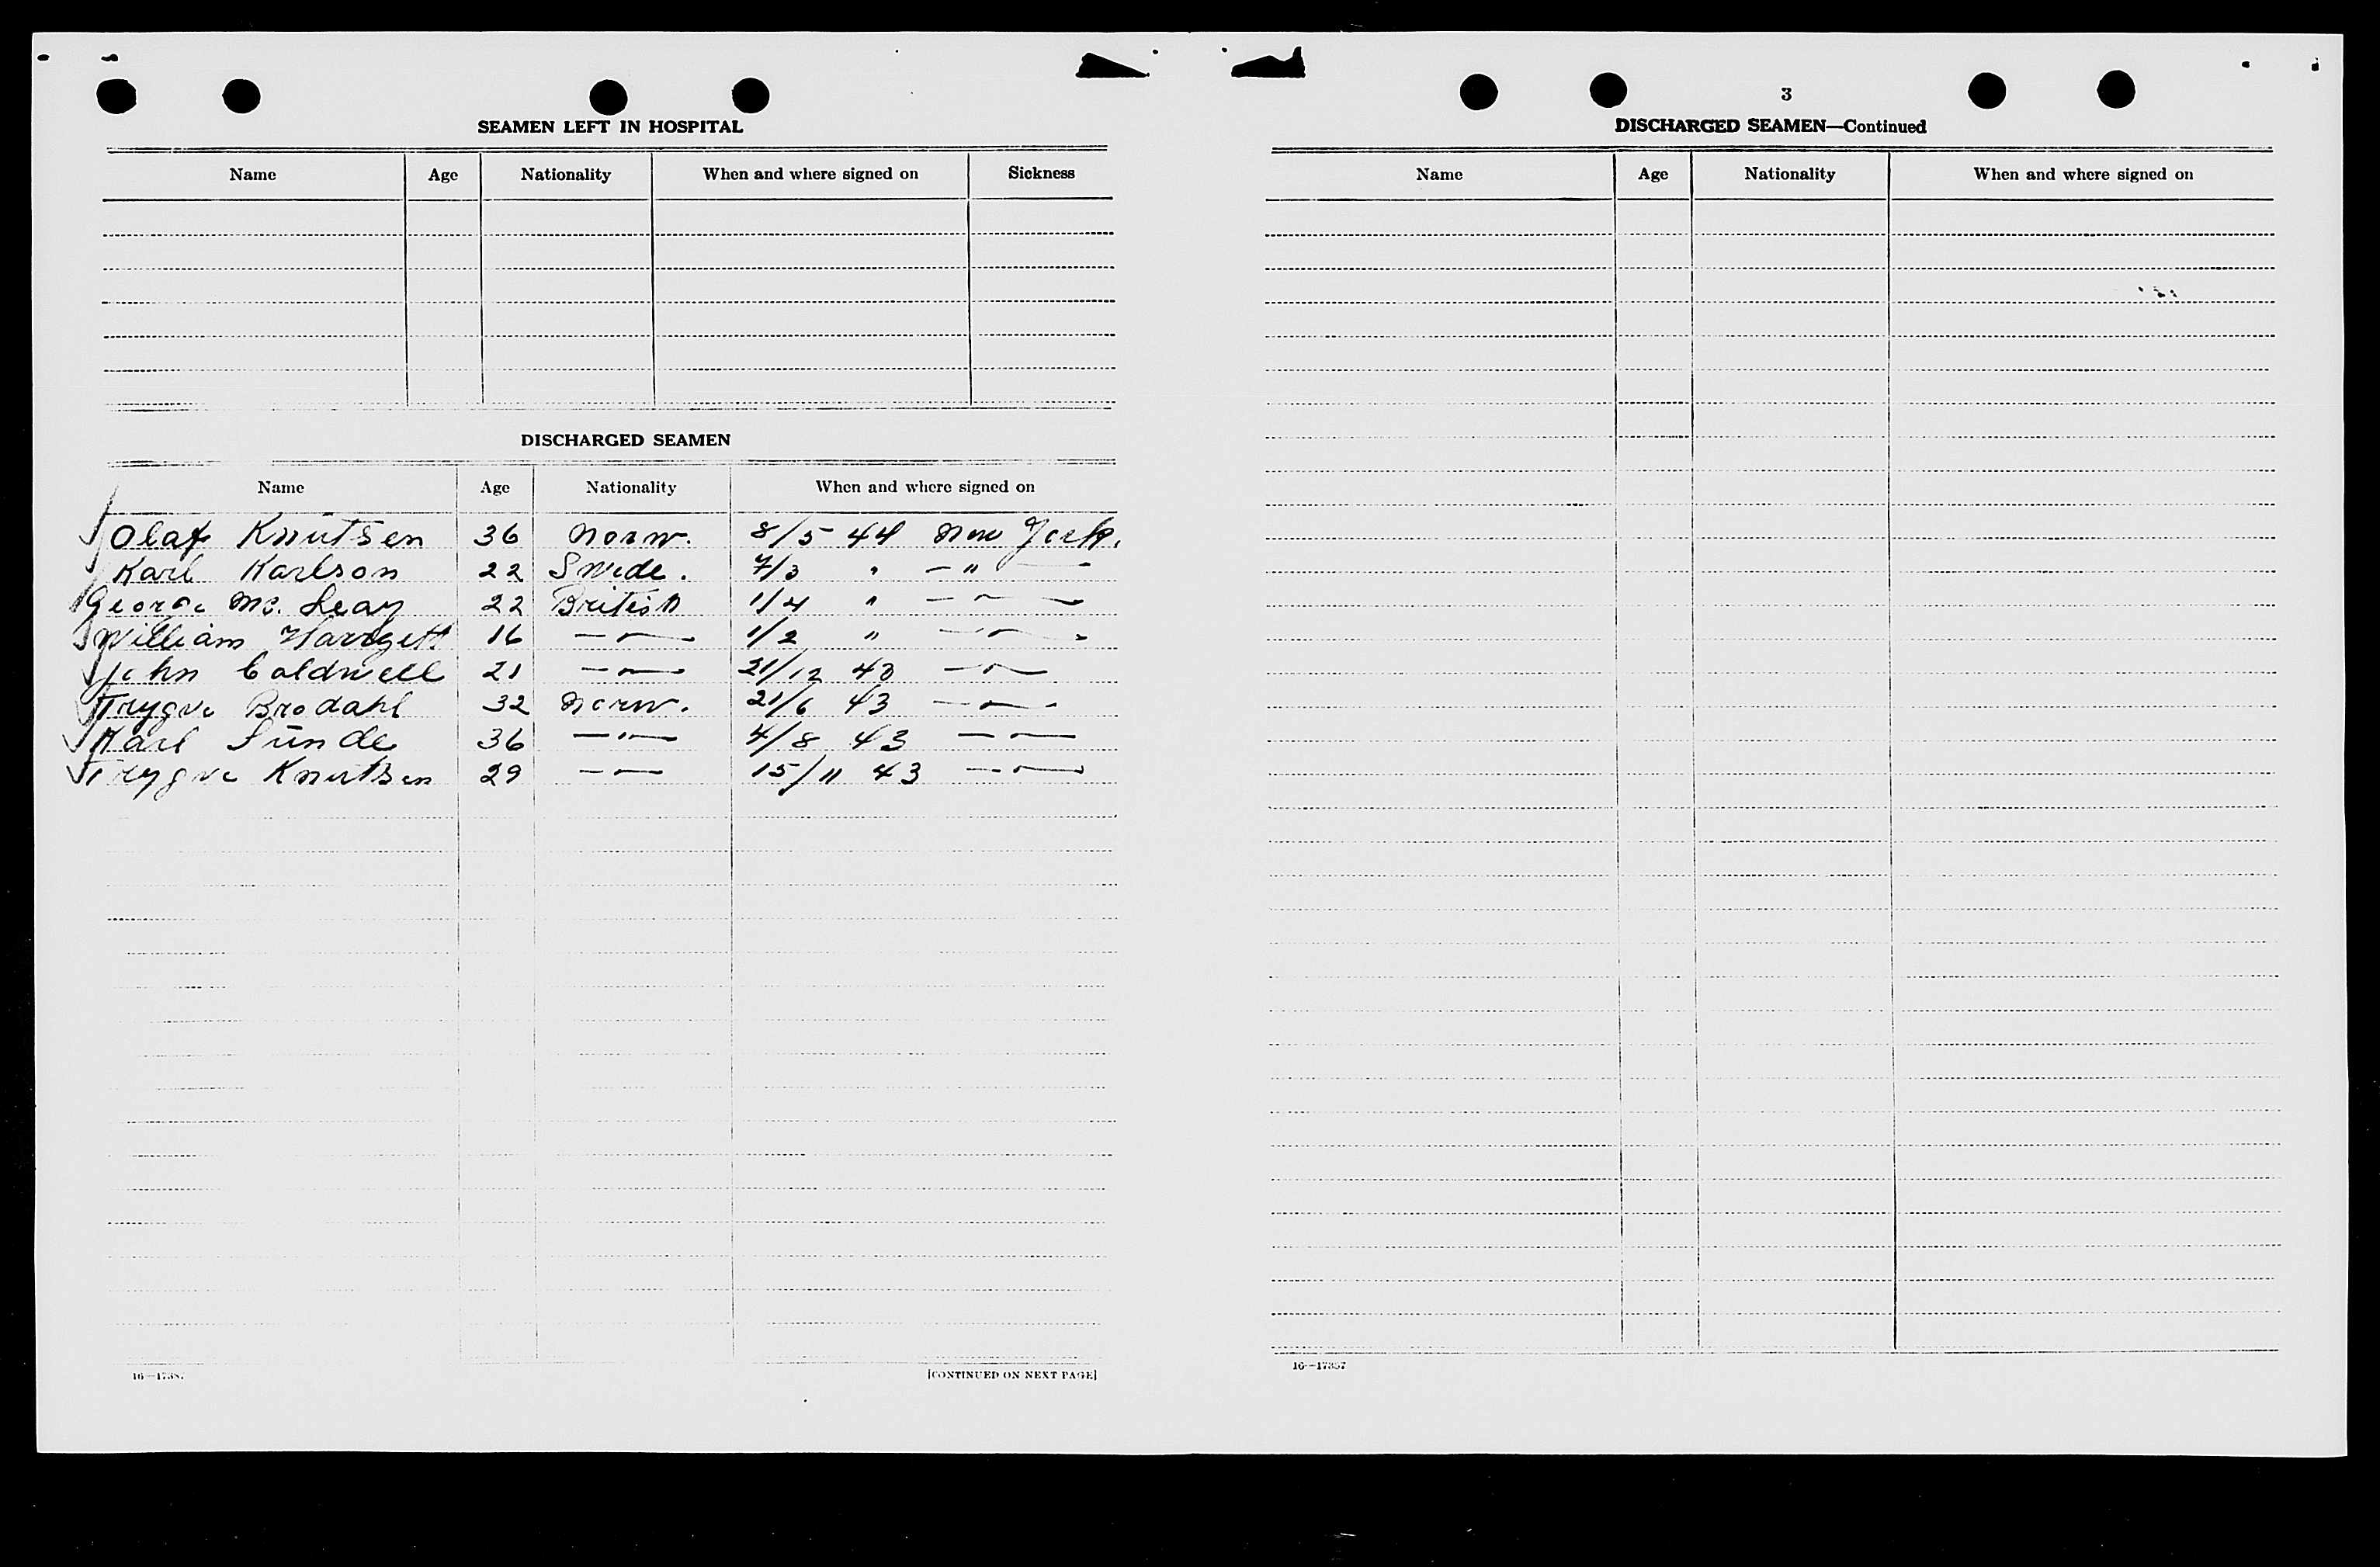 SEAMEN LEFT IN HOSPITAL
Name Age Nationality When and where signed on Sickness
DISCHARGED SEAMEN
Name Age Nationality When and where signed on
√ Olaf Knutsen 36 Norw. 8/5 44 New York.
√ Karl Karlson 22 Swede. 7/3 " — " —
√ George Mc. Leay 22 British 1/4 " — " —
√ William 16 — " — 1/2 " — " —
√ John Caldwell 21 — " — 21/12 43 — " —
√ Trygve Brodahl 32 Norw. 21/6 43 — " —
√ Karl Sunde 36 — " — 4/8 43 — " —
√ Trygve Knutsen 29 — " — 15/11 43 — " —
[CONTINUED ON NEXT PAGE]
3
DISCHARGED SEAMEN—Continued
Name Age Nationality When and where signed on